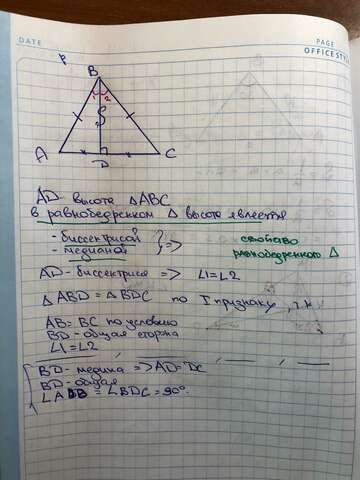 DATE
PAGE
OFFICE STY
B
1 2
A
D
C
AD - высота △ABC
в равнобедренном △ высота является
- биссектрисой
- медианой
=> свойство
равнобедренного △
AD - биссектриса => ∠1=∠2
△ABD = △BDC по I признаку, т.к
AB = BC по условию
BD - общая сторона
∠1=∠2
BD - медина => AD = DC
BD - общая
∠ADB = ∠BDC = 90°.